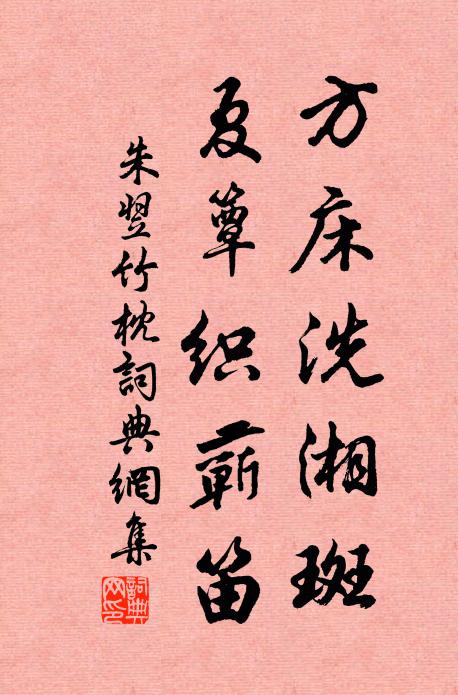 方床洗湘斑
夏簟织蕲笛
朱翌竹枕詞典網集
詞典网印